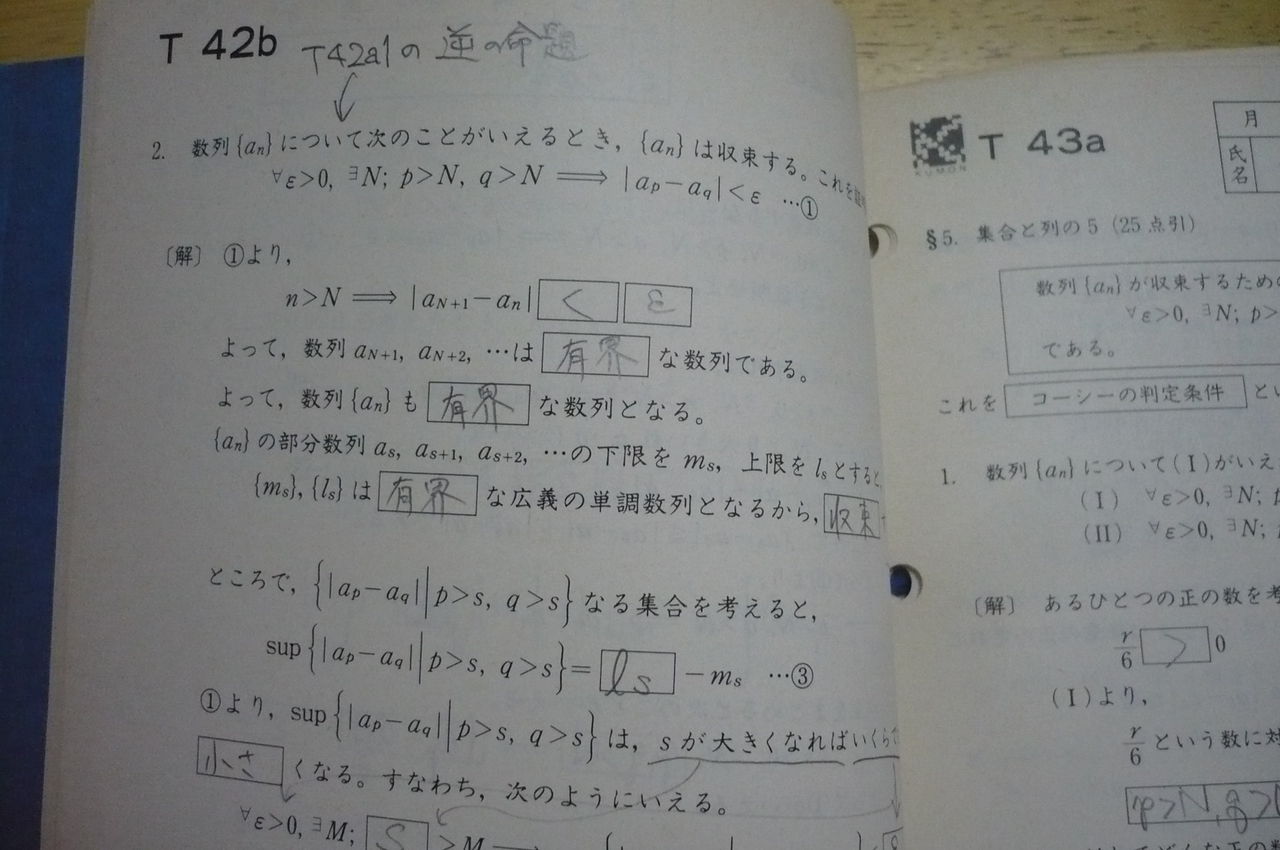 T 42b T42a1の 逆の命題
2. 数列{aₙ}について次のことがいえるとき, {aₙ}は収束する。これを
∀ε>0, ∃N; p>N, q>N ⟹ |aₚ−a_q|<ε …①
〔解〕 ①より,
n>N ⟹ |a_{N+1}−aₙ| < ε
よって, 数列 a_{N+1}, a_{N+2}, …は 有界 な数列である。
よって, 数列{aₙ}も 有界 な数列となる。
{aₙ}の部分数列 aₛ, aₛ₊₁, aₛ₊₂, …の下限を mₛ, 上限を lₛとすると,
{mₛ}, {lₛ}は 有界 な広義の単調数列となるから, 収束
ところで, {|aₚ−a_q| | p>s, q>s} なる集合を考えると,
sup{|aₚ−a_q| | p>s, q>s}= ls −mₛ …③
①より, sup{|aₚ−a_q| | p>s, q>s} は, sが大きくなればいくら
小さ くなる。すなわち, 次のようにいえる。
∀ε>0, ∃M; S >M
KUMON
T 43a
月
氏名
§5. 集合と列の5 (25点引)
数列{aₙ}が収束するための
∀ε>0, ∃N; p>
である。
これを コーシーの判定条件 とい
1. 数列{aₙ}について(I)がいえ
(I) ∀ε>0, ∃N;
(II) ∀ε>0, ∃N;
〔解〕 あるひとつの正の数を考
r/6 > 0
(I)より,
r/6 という数に対
p>N, q>